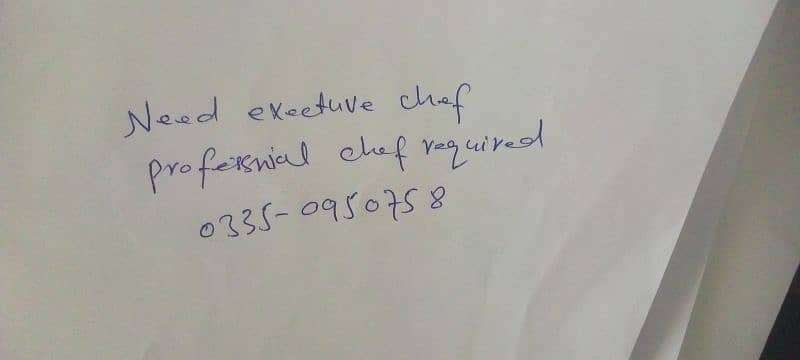 Need exectuve chef
profersnial chef required
0335-0950758